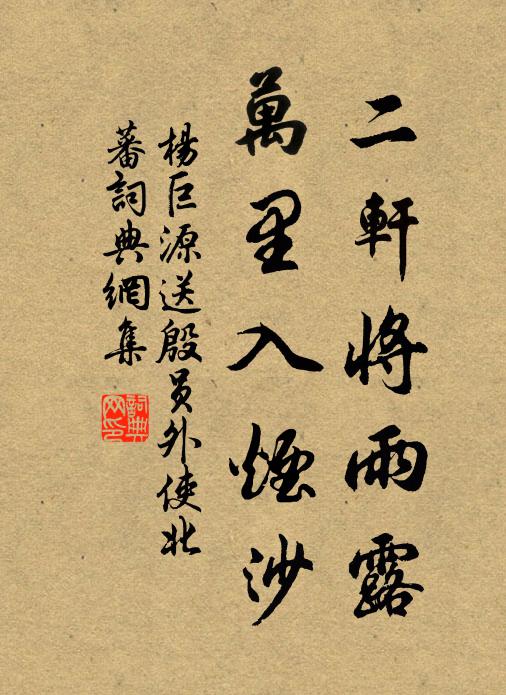 二軒將雨露
萬里入煙沙
楊巨源送殷員外使北
蕃詞典網集
詞典
网印